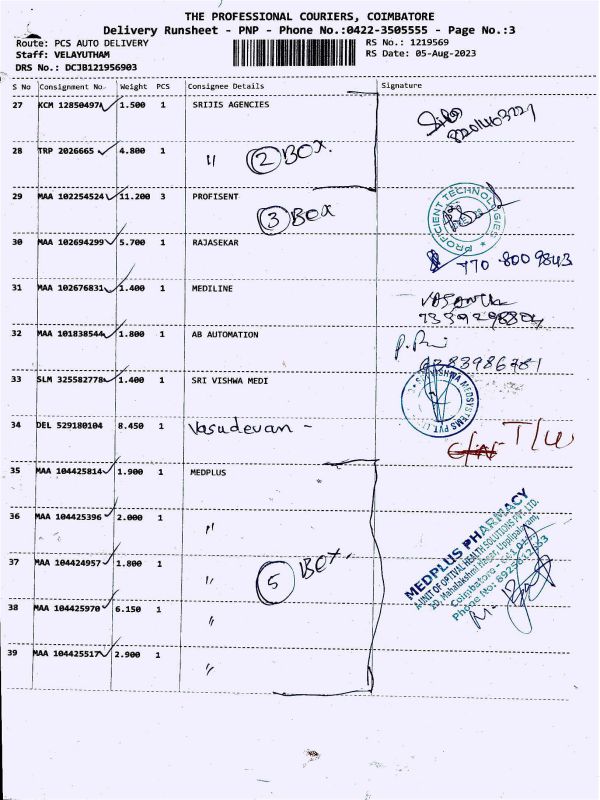 THE PROFESSIONAL COURIERS, COIMBATORE
Delivery Runsheet - PNP - Phone No.:0422-3505555 - Page No.:3
Route: PCS AUTO DELIVERY
RS No.: 1219569
Staff: VELAYUTHAM
RS Date: 05-Aug-2023
DRS No.: DCJB121956903
S No Consignment No. Weight PCS Consignee Details Signature
27 KCM 12850497A 1.500 1 SRIJIS AGENCIES
28 TRP 2026665 4.800 1 " 2 BOX.
29 MAA 102254524 11.200 3 PROFISENT
3 BOX
PROFICIENT TECHNOLOGIES
30 MAA 102694299 5.700 1 RAJASEKAR
770 800 9843
31 MAA 102676831 1.400 1 MEDILINE
32 MAA 101838544 1.800 1 AB AUTOMATION
33 SLM 325582778 1.400 1 SRI VISHWA MEDI
VISHWA MEDSYSTEMS PVT.
34 DEL 529180104 8.450 1 Vasudevan -
T/W
35 MAA 104425814 1.900 1 MEDPLUS
36 MAA 104425396 2.000 1 "
37 MAA 104424957 1.800 1 "
5 BOX.
38 MAA 104425970 6.150 1 "
39 MAA 104425517 2.900 1 "
MEDPLUS PHARMACY
A UNIT OF OPTIVAL HEALTH SOLUTIONS PVT. LTD.
Mahalakshmi Nagar, Uppilipalayam,
Coimbatore -
Phone No: